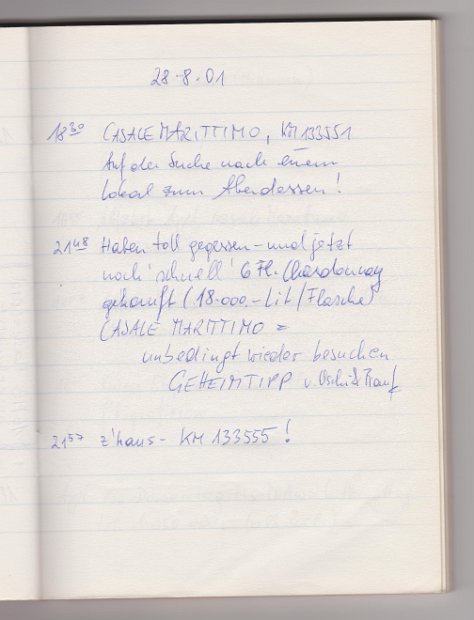 28-8-01
18³⁰ CASALE MARITTIMO, KM 133551
Auf der Suche nach einem
Lokal zum Abendessen!
21⁴⁸ Haben toll gegessen - und jetzt
noch 'schnell' 6 Fl. Chardonnay
gekauft (18.000.- Lit/Flasche)
CASALE MARITTIMO =
unbedingt wieder besuchen
GEHEIMTIPP v. Uschi &
21⁵⁷ z'haus - KM 133555!